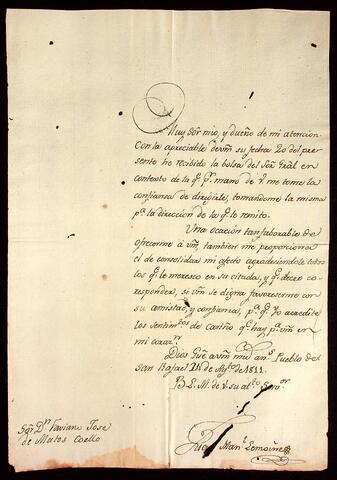 Muy Sor mio, y dueño de mi atencion.
Con la apreciable de vm su fecha 20 del pre
sente he recibido la bolsa del Sor Gral en
contexto de la q.e p.r mano de v. me tome la
confianza de dirigirle, tomandome la misma
p.a la direccion de la q.e le remito.
Una ocacion tan faborable de
ofrecerme á vm, tambien me proporciona
el de consolidar mi afecto agradeciendole todos
los q.e le meresco en su citada, y q.e deceo co
responder, si vm se digna favoreserme con
su amistad, y confianza, p.a q.e yo acredite
los sentim.tos de cariño q.e hay p.a vm en
mi coraz.n
Dios Gue a vm m.s an.s Pueblo de
San Rafael de Ag.to de 1811.
B. L. M. de v. su at.to Serv.or
Man.l Lemoine
Sor D.n Faviano Jose
de Matos Coello